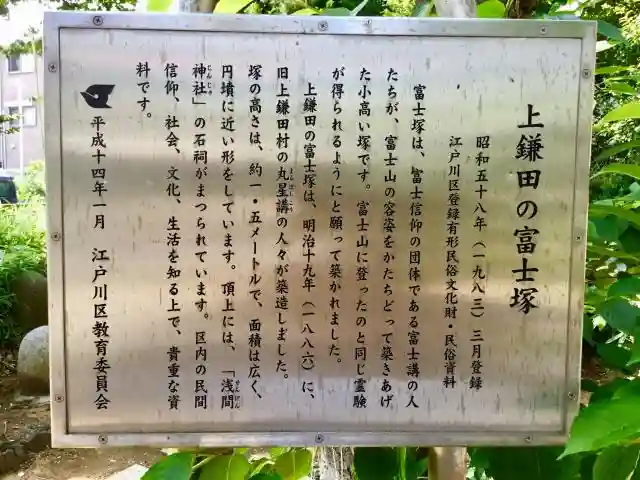 上鎌田の富士塚
昭和五十八年（一九八三）三月登録
江戸川区登録有形民俗文化財・民俗資料
富士塚は、富士信仰の団体である富士講の人
たちが、富士山の容姿をかたちどって築きあげ
た小高い塚です。富士山に登ったのと同じ霊験
が得られるようにと願って築かれました。
上鎌田の富士塚は、明治十九年（一八八六）に、
旧上鎌田村の丸星講の人々が築造しました。
塚の高さは、約一・五メートルで、面積は広く、
円墳に近い形をしています。頂上には、「浅間
神社」の石祠がまつられています。区内の民間
信仰、社会、文化、生活を知る上で、貴重な資
料です。
平成十四年一月 江戸川区教育委員会